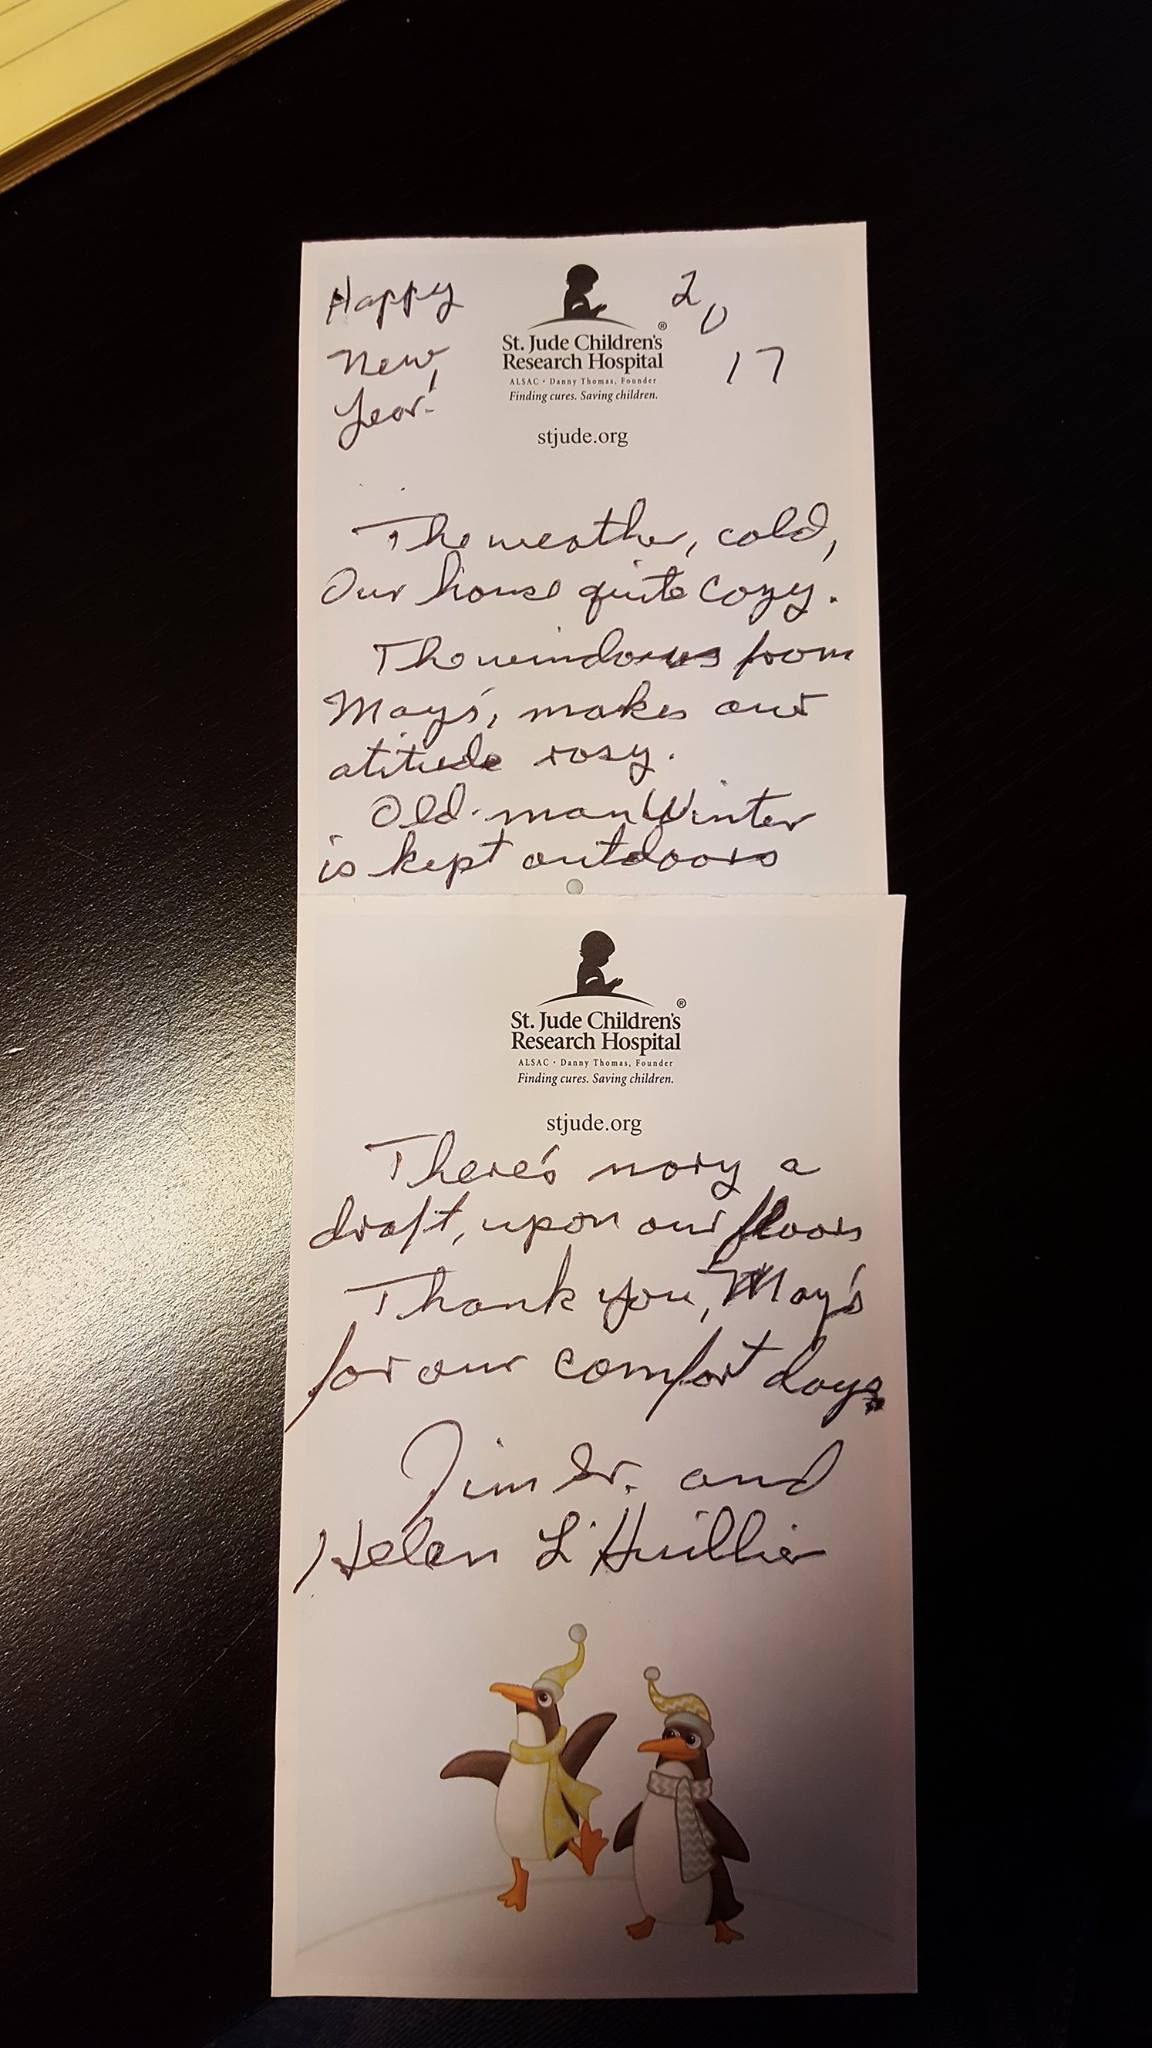 Happy
New
Year!
20
17
St. Jude Children's®
Research Hospital
ALSAC • Danny Thomas, Founder
Finding cures. Saving children.
stjude.org
The weather, cold,
Our house quite cozy.
The windows from
May's, makes our
atitude rosy.
Old-man Winter
is kept outdoors
St. Jude Children's®
Research Hospital
ALSAC • Danny Thomas, Founder
Finding cures. Saving children.
stjude.org
There's nory a
draft, upon our floors
Thank you, May's
for our comfort days.
Jim Sr. and
Helen L'Huillier